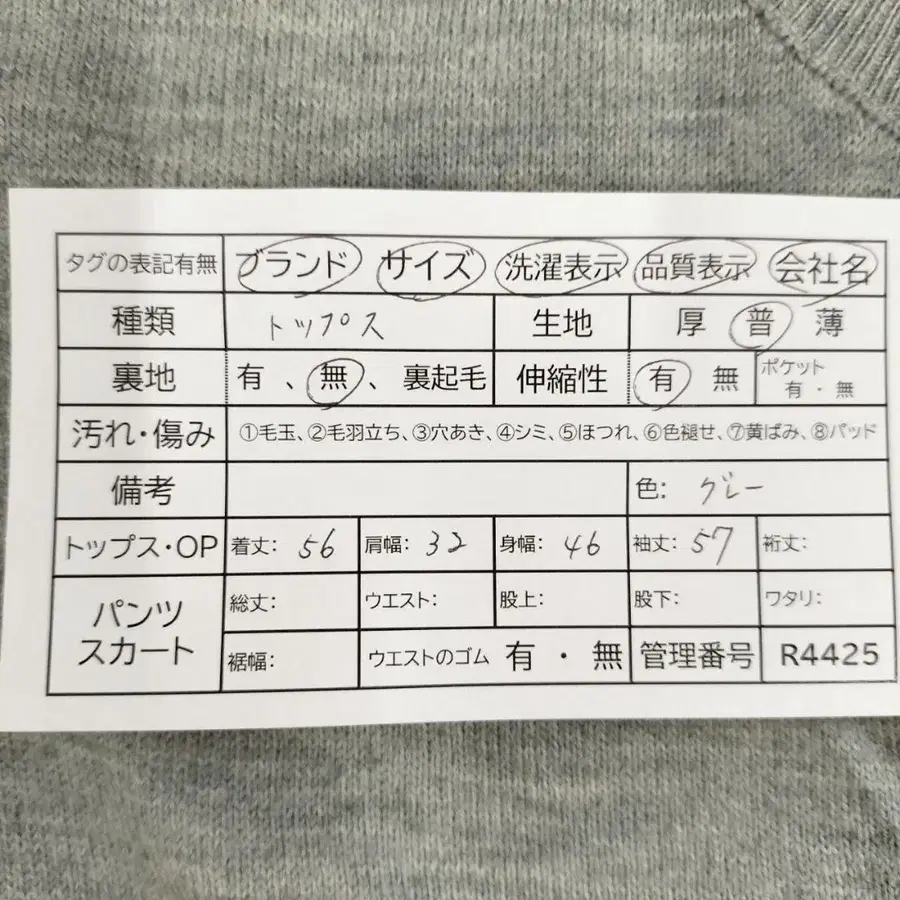 タグの表記有無 ブランド サイズ 洗濯表示 品質表示 会社名
種類 トップス 生地 厚 普 薄
裏地 有 、無、裏起毛 伸縮性 有 無 ポケット 有・無
汚れ・傷み ①毛玉、②毛羽立ち、③穴あき、④シミ、⑤ほつれ、⑥色褪せ、⑦黄ばみ、⑧パッド
備考 色: グレー
トップス・OP 着丈: 56 肩幅: 32 身幅: 46 袖丈: 57 裄丈:
パンツ スカート 総丈: ウエスト: 股上: 股下: ワタリ:
裾幅: ウエストのゴム 有・無 管理番号 R4425